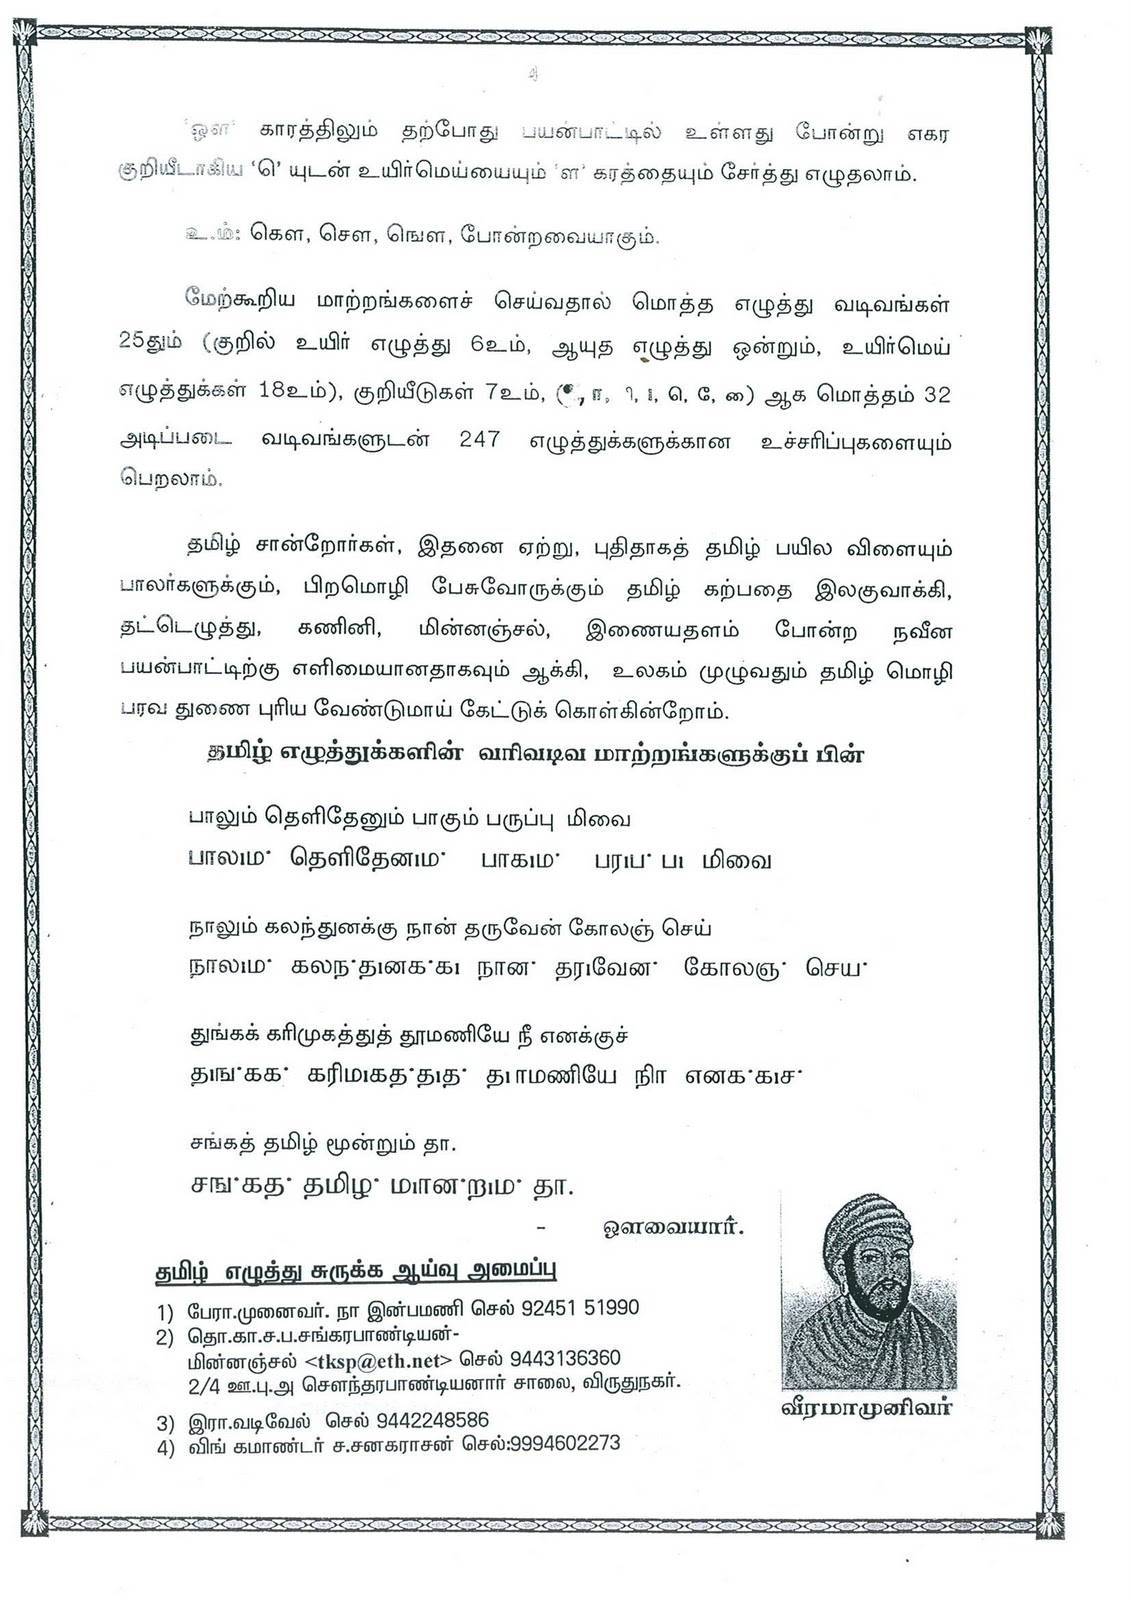 4
'ஔ' காரத்திலும் தற்போது பயன்பாட்டில் உள்ளது போன்று எகர
குறியீடாகிய 'ெ' யுடன் உயிர்மெய்யையும் 'ள' கரத்தையும் சேர்த்து எழுதலாம்.
உ.ம்: கௌ, சௌ, ஙௌ, போன்றவையாகும்.
மேற்கூறிய மாற்றங்களைச் செய்வதால் மொத்த எழுத்து வடிவங்கள்
25தும் (குறில் உயிர் எழுத்து 6உம், ஆயுத எழுத்து ஒன்றும், உயிர்மெய்
எழுத்துக்கள் 18உம்), குறியீடுகள் 7உம், ( ா, ி, ெ, ே, ை) ஆக மொத்தம் 32
அடிப்படை வடிவங்களுடன் 247 எழுத்துக்களுக்கான உச்சரிப்புகளையும்
பெறலாம்.
தமிழ் சான்றோர்கள், இதனை ஏற்று, புதிதாகத் தமிழ் பயில விளையும்
பாலர்களுக்கும், பிறமொழி பேசுவோருக்கும் தமிழ் கற்பதை இலகுவாக்கி,
தட்டெழுத்து, கணினி, மின்னஞ்சல், இணையதளம் போன்ற நவீன
பயன்பாட்டிற்கு எளிமையானதாகவும் ஆக்கி, உலகம் முழுவதும் தமிழ் மொழி
பரவ துணை புரிய வேண்டுமாய் கேட்டுக் கொள்கின்றோம்.
தமிழ் எழுத்துக்களின் வரிவடிவ மாற்றங்களுக்குப் பின்
பாலும் தெளிதேனும் பாகும் பருப்பு மிவை
பாலıம˙ தெளிதேனıம˙ பாகıம˙ பரıப˙பı மிவை
நாலும் கலந்துனக்கு நான் தருவேன் கோலஞ் செய்
நாலıம˙ கலந˙தıனக˙கı நான˙ தரıவேன˙ கோலஞ˙ செய˙
துங்கக் கரிமுகத்துத் தூமணியே நீ எனக்குச்
தıங˙கக˙ கரிமıகத˙தıத˙ தıாமணியே நிா எனக˙கıச˙
சங்கத் தமிழ் மூன்றும் தா.
சங˙கத˙ தமிழ˙ மıான˙றıம˙ தா.
- ஔவையார்.
தமிழ் எழுத்து சுருக்க ஆய்வு அமைப்பு
1) பேரா.முனைவர். நா இன்பமணி செல் 92451 51990
2) தொ.கா.ச.ப.சங்கரபாண்டியன்-
மின்னஞ்சல் <tksp@eth.net> செல் 9443136360
2/4 ஊ.பு.அ சௌந்தரபாண்டியனார் சாலை, விருதுநகர்.
3) இரா.வடிவேல் செல் 9442248586
4) விங் கமாண்டர் ச.சனகராசன் செல்:9994602273
வீரமாமுனிவர்